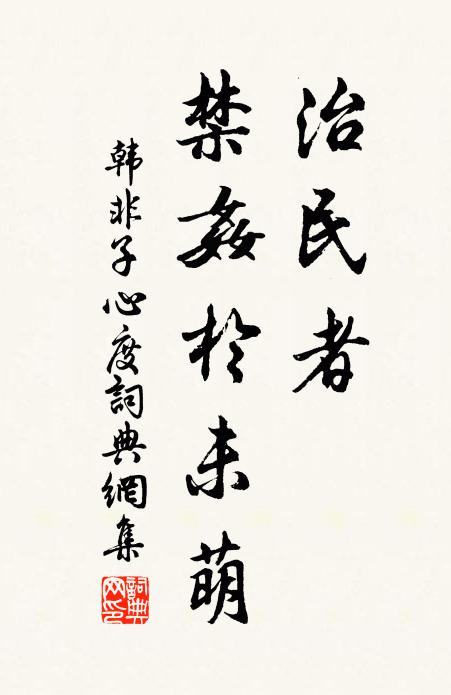 治民者
禁姦於未萌
韩非子心度詞典網集
詞典网印